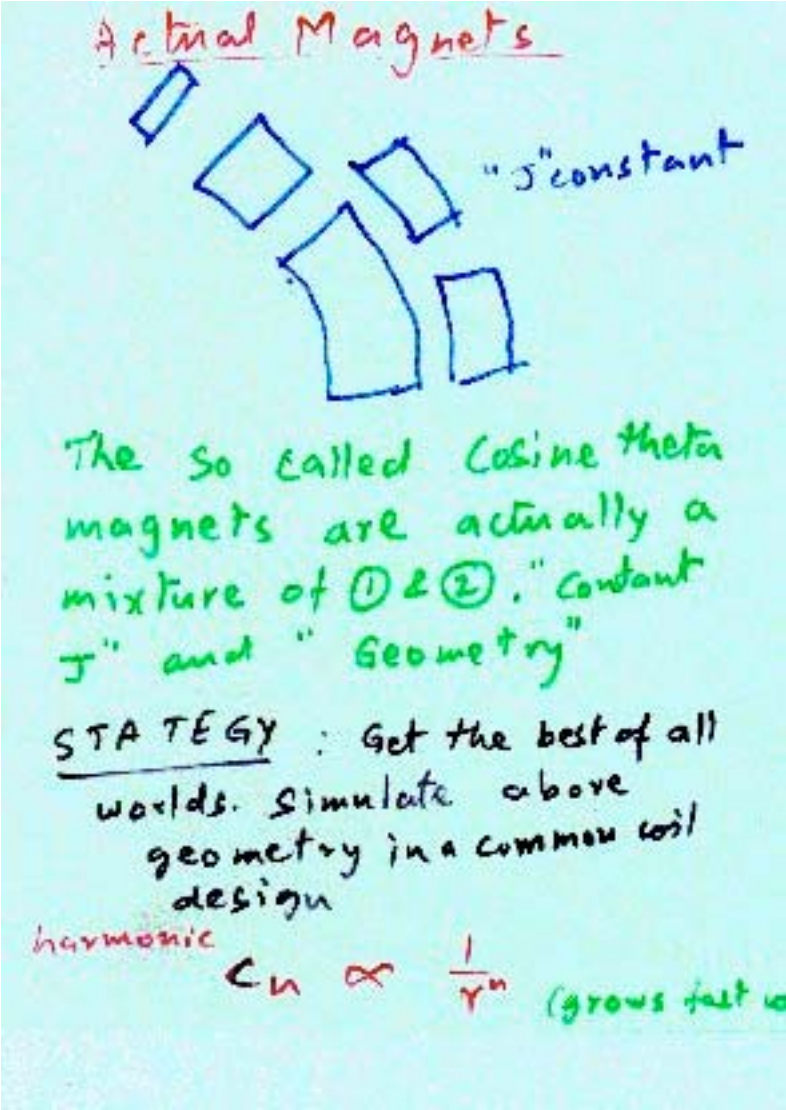 Actual Magnets
"J" constant
The so called Cosine theta
magnets are actually a
mixture of ① & ②. "Contant
J" and "Geometry"
STATEGY : Get the best of all
worlds. Simulate above
geometry in a common coil
design
harmonic
Cn ∝ 1/rⁿ (grows fast